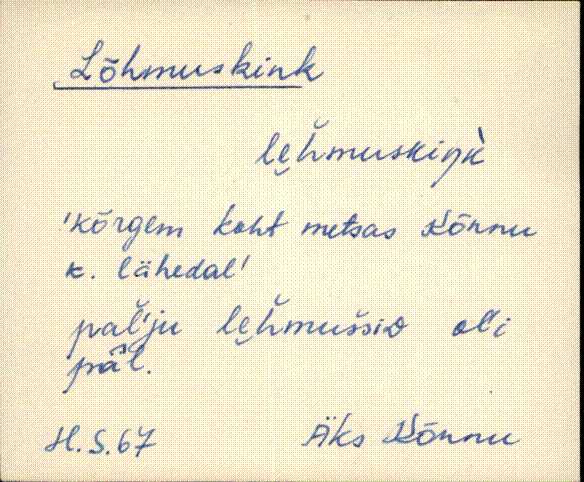 Lõhmuskink
le̮h̆muskiŋk̀
'kõrgem koht metsas Kõnnu
k. lähedal'
pal'l'ju le̮h̆mušsiᴅ ol'i
päl.
H.S.67 Äks Kõnnu